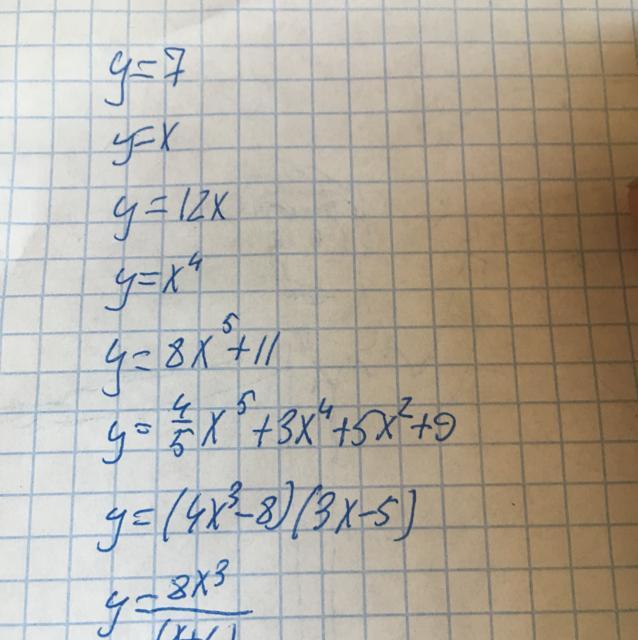 y = 7
y = x
y = 12x
y = x⁴
y = 8x⁵ + 11
y = 4/5 x⁵ + 3x⁴ + 5x² + 9
y = (4x³ - 8)(3x - 5)
y = 8x³